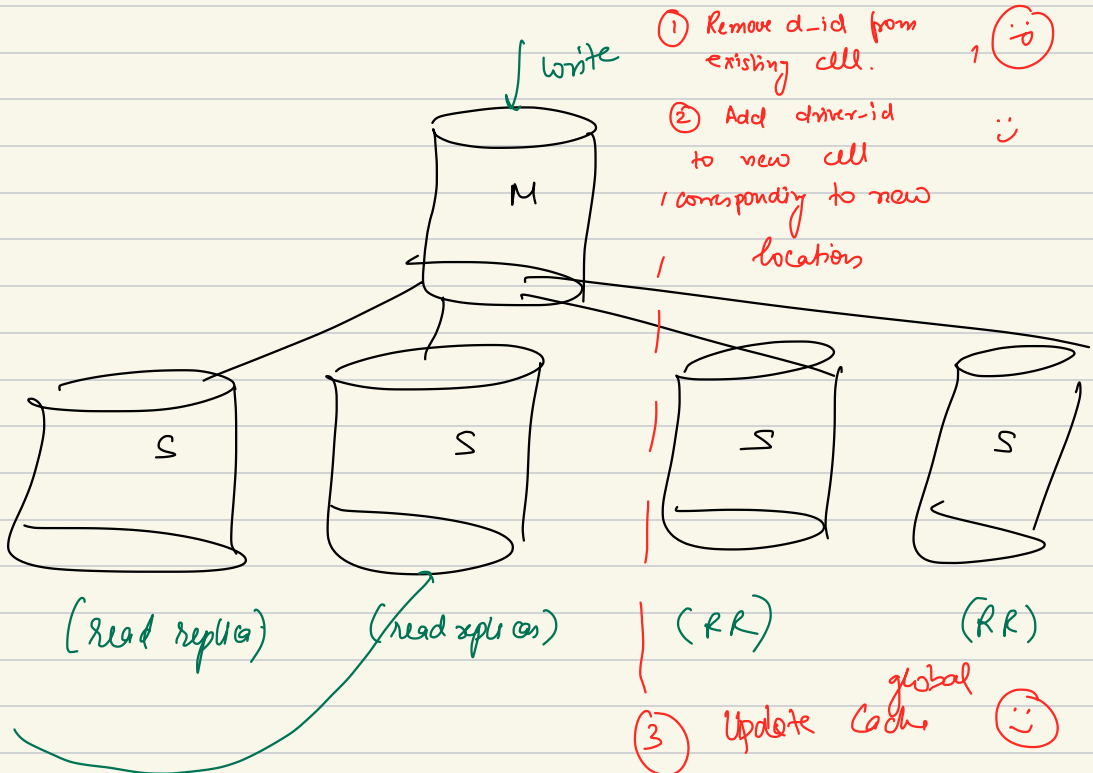 write
① Remove d_id from
existing cell.
② Add driver-id
to new cell
corresponding to new
location
M
S
S
S
S
(read replica)
(read replicas)
(RR)
(RR)
global
③ Update Cache